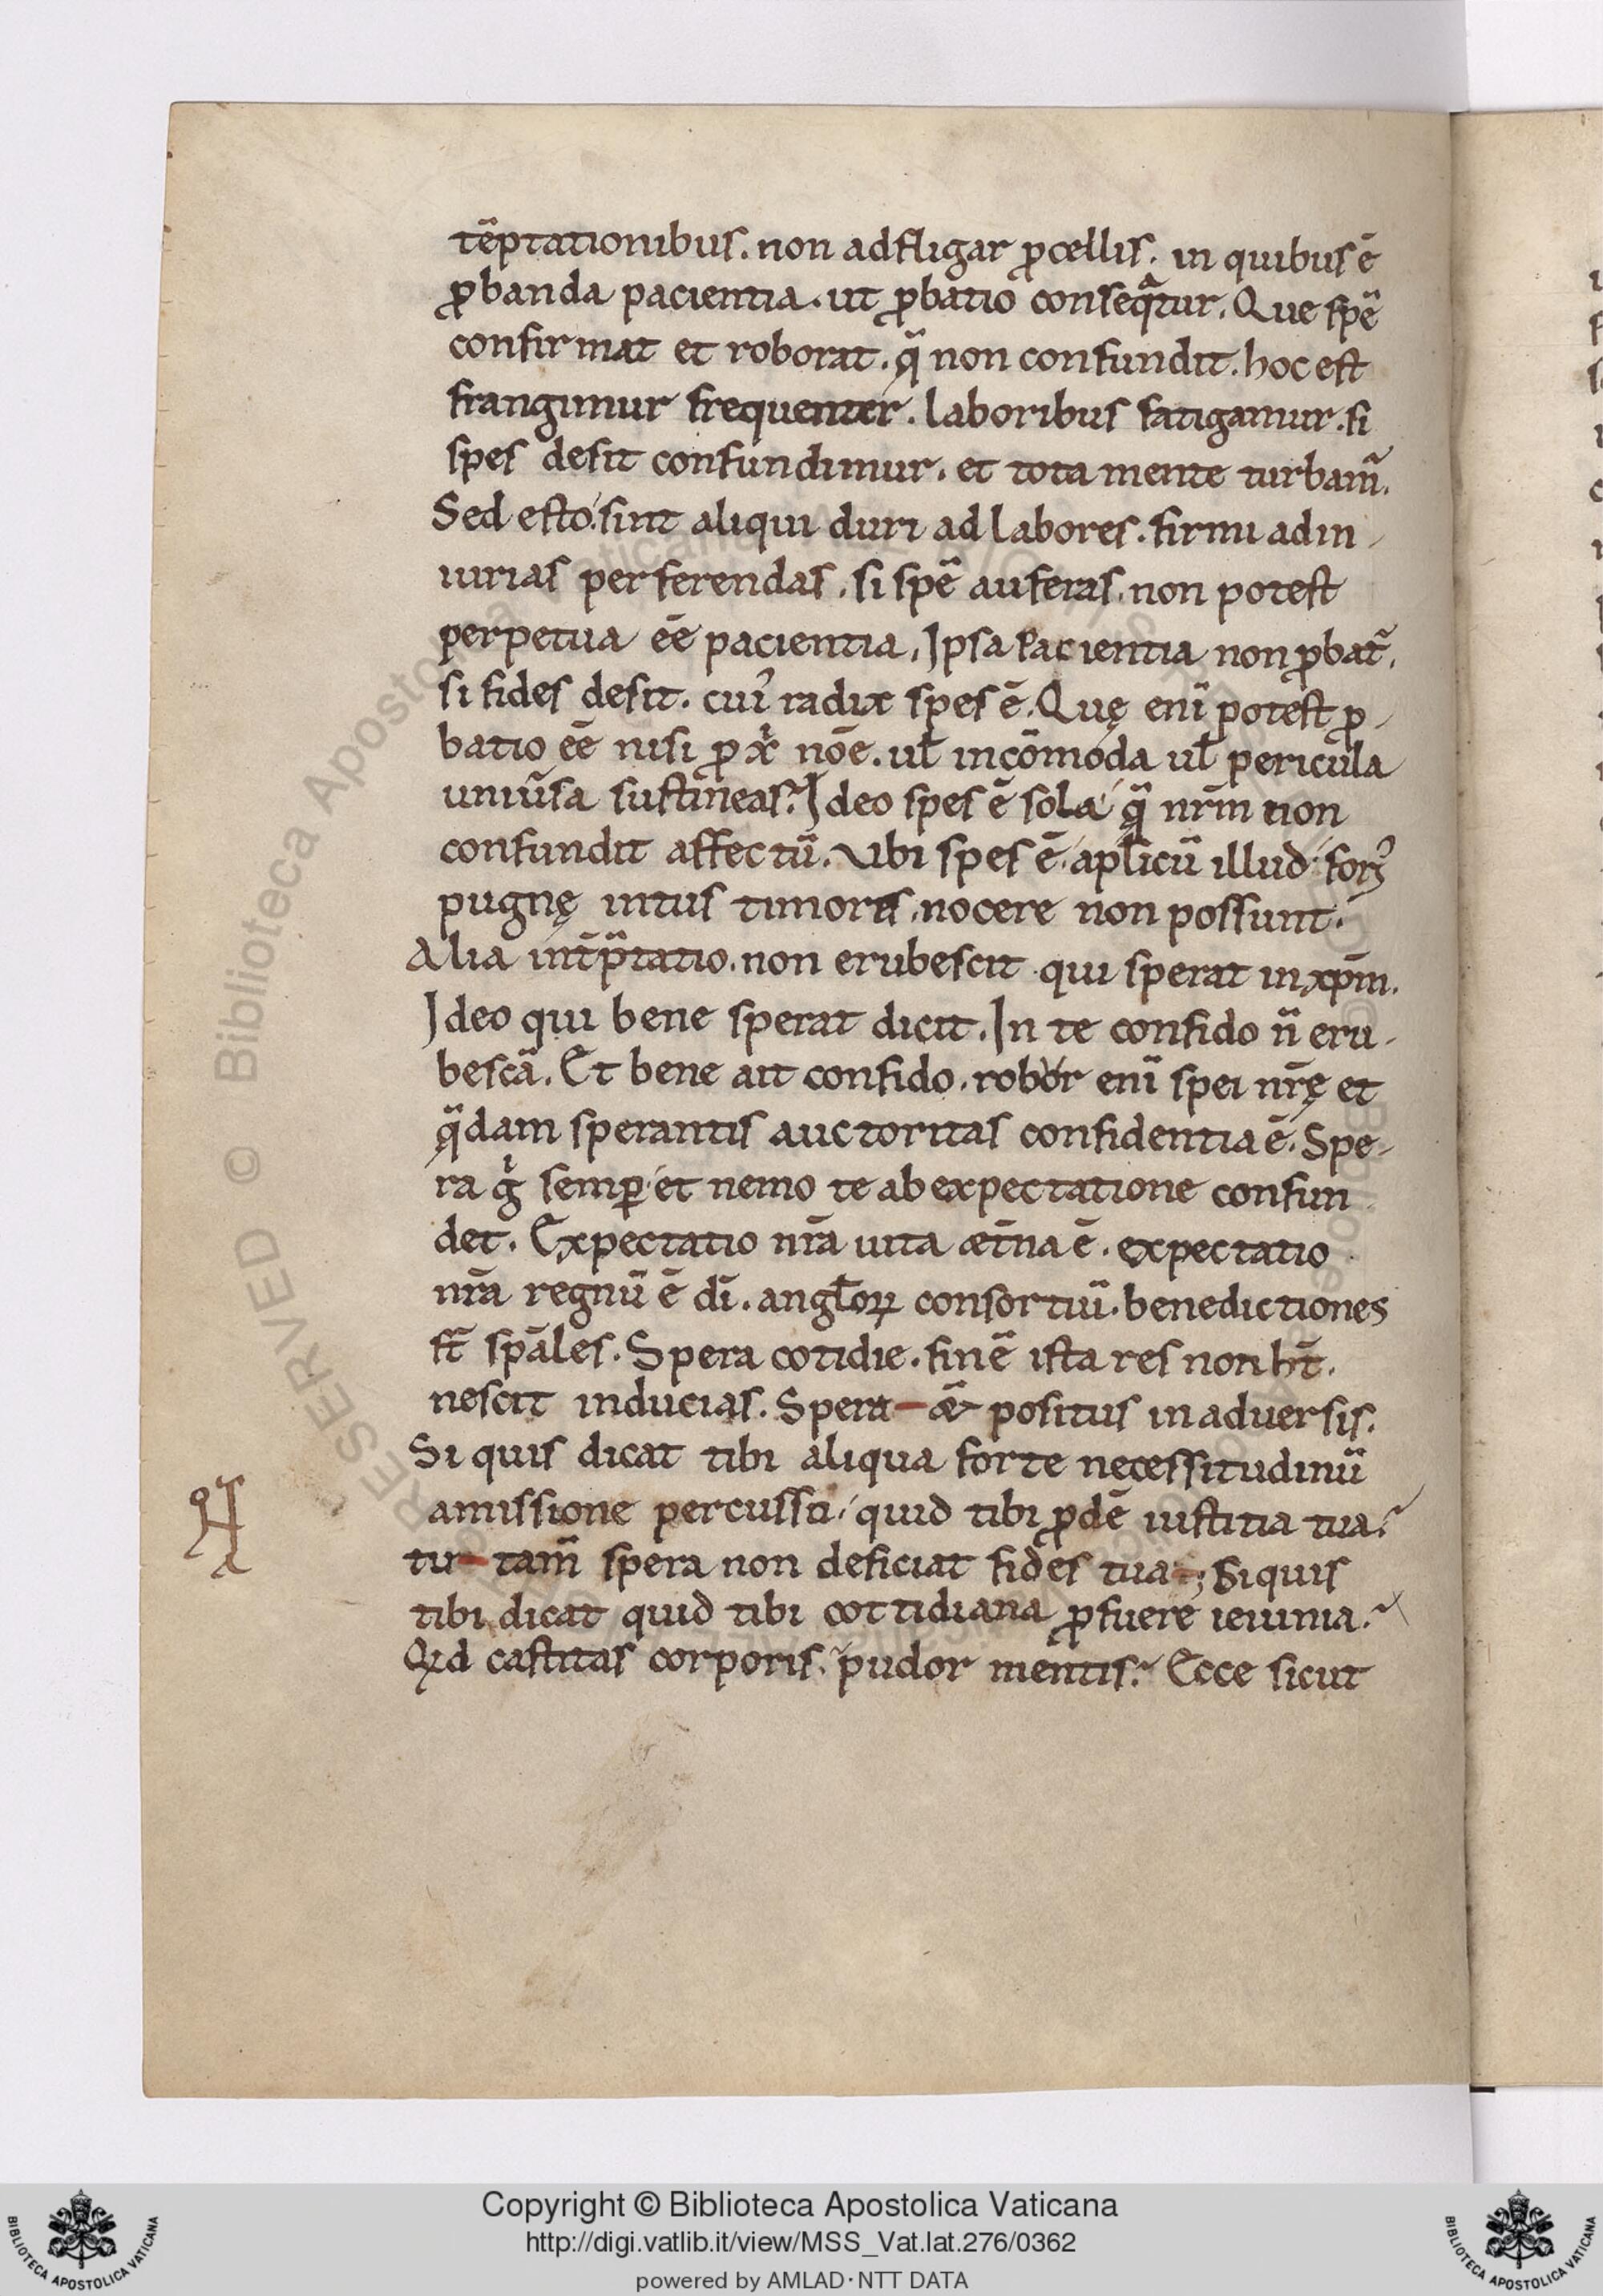 tēptationibus. non adfligar ꝓcellis. in quibus ē
ꝓbanda pacientia. ut ꝓbatio conseqͣtur. Que spē
confirmat et roborat. qͣ non confundit. hoc est
frangimur frequenter. laboribus fatigamur. si
spes desit confundimur. et tota mente turbam̄.
Sed esto. sint aliqui duri ad labores. firmi ad in
iurias perferendas. si spē auferas. non potest
perpetua eē pacientia. Ipsa Pacientia non ꝓbat̄.
si fides desit. cuiꝰ radix spes ē. Quę enī potest ꝓ
batio eē nisi ꝓ xͥ nōe. ul̄ incōmoda ul̄ pericula
uniūsa sustineas? Ideo spes ē sola qͣ nr̄m non
confundit affectū. Ubi spes ē aplicū illud foriꝰ
pugnę intus timores. nocere non possunt.
Alia int̄p̄tatio. non erubescit qui sperat in xp̄m.
Ideo qui bene sperat dicit. In te confido n̄ eru
bescā. Et bene ait confido. robor enī spei nr̄ę et
qͣdam sperantis auctoritas confidentia ē. Spe
ra gͥ semꝑ et nemo te ab expectatione confun
det. Expectatio nr̄a uita æt̄na ē. expectatio
nr̄a regnū ē dī. angl̄oꝝ consortiū. benedictiones
st̄ spāles. Spera cotidie. finē ista res non ht̄.
nescit inducias. Spera ǣ positus in aduersis.
Si quis dicat tibi aliqua forte necessitudinū
amissione percussti. quid tibi ꝓdē iustitia tua?
tu tam̄ spera non deficiat fides tua; Si quis
tibi dicat quid tibi cottidiana ꝓfuere ieiunia?
Qͥd castitas corporis. pudor mentis? Ecce sicut
© Biblioteca Apostolica Vaticana
RESERVED
Copyright © Biblioteca Apostolica Vaticana
http://digi.vatlib.it/view/MSS_Vat.lat.276/0362
powered by AMLAD·NTT DATA
BIBLIOTECA APOSTOLICA VATICANA
BIBLIOTECA APOSTOLICA VATICANA